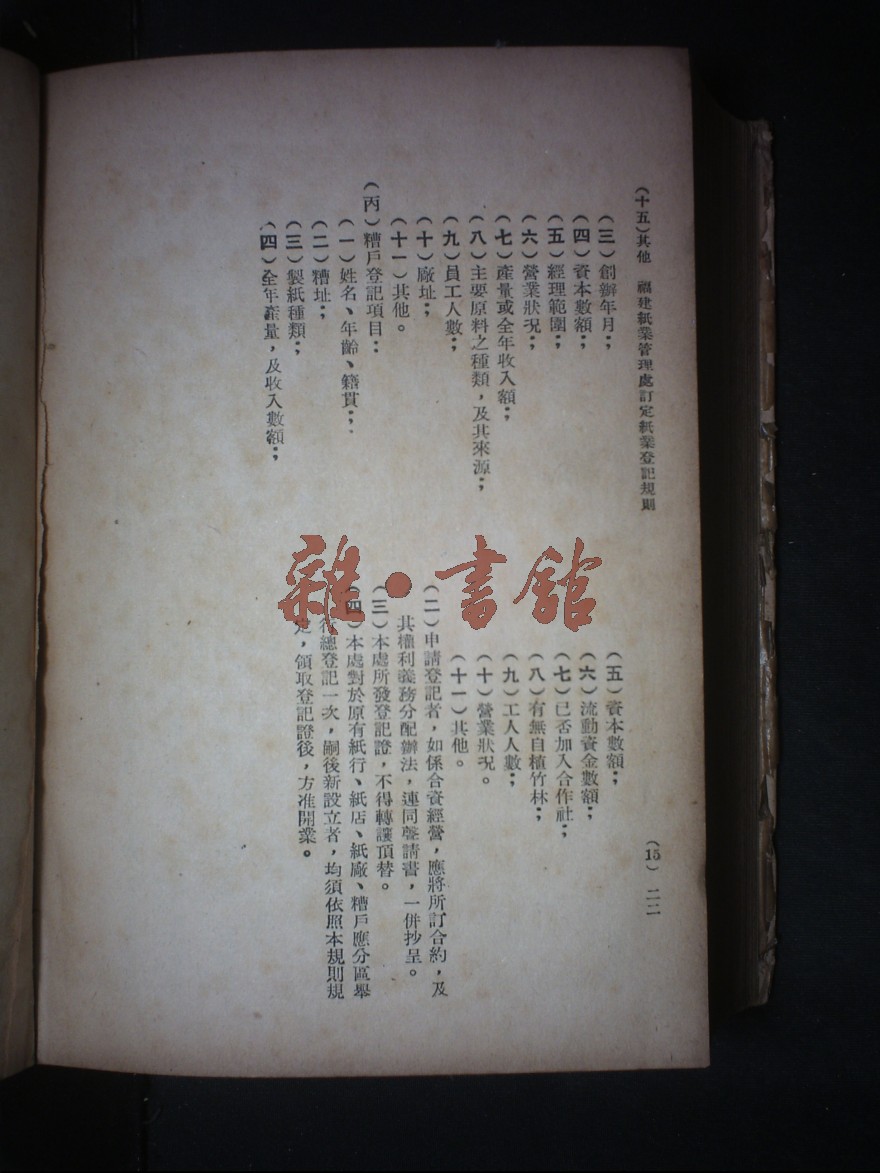 (十五)其他　福建紙業管理處訂定紙業登記規則
(三)創辦年月；
(四)資本數額；
(五)經理範圍；
(六)營業狀况；
(七)產量或全年收入額；
(八)主要原料之種類，及其來源；
(九)員工人數；
(十)廠址；
(十一)其他。
(丙)糟戶登記項目：
(一)姓名、年齡、籍貫；
(二)糟址；
(三)製紙種類；
(四)全年產量，及收入數額；
(五)資本數額；
(六)流動資金數額；
(七)已否加入合作社；
(八)有無自植竹林；
(九)工人人數；
(十)營業狀况。
(十一)其他。
(二)申請登記者，如係合資經營，應將所訂合約，及
其權利義務分配辦法，連同聲請書，一併抄呈。
(三)本處所發登記證，不得轉讓頂替。
(四)本處對於原有紙行、紙店、紙廠、糟戶應分區舉
行總登記一次，嗣後新設立者，均須依照本規則規
定，領取登記證後，方准開業。
(15)　二二
雜·書館